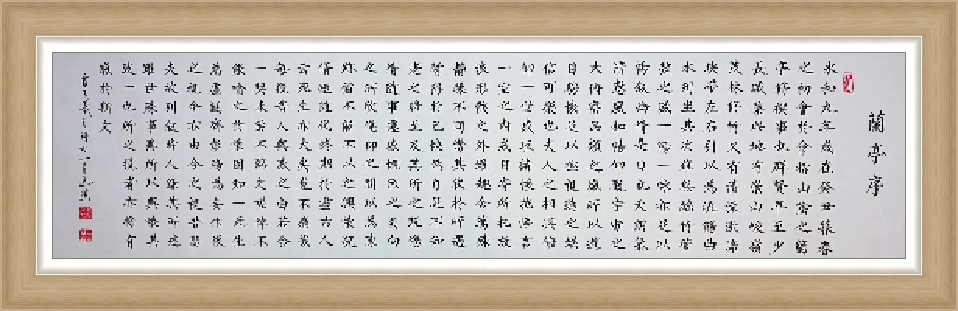 蘭亭序
永和九年歲在癸丑暮春
之初會於會稽山陰之蘭
亭修禊事也群賢畢至少
長咸集此地有崇山峻嶺
茂林修竹又有清流激湍
映帶左右引以為流觴曲
水列坐其次雖無絲竹管
弦之盛一觴一詠亦足以
暢敘幽情是日也天朗氣
清惠風和暢仰觀宇宙之
大俯察品類之盛所以遊
目騁懷足以極視聽之娛
信可樂也夫人之相與俯
仰一世或取諸懷抱悟言
一室之內或因寄所託放
浪形骸之外雖趣舍萬殊
靜躁不同當其欣於所遇
暫得於己快然自足不知
老之將至及其所之既倦
情隨事遷感慨係之矣向
之所欣俛仰之間以為陳
跡猶不能不以之興懷況
脩短隨化終期於盡古人
云死生亦大矣豈不痛哉
每攬昔人興感之由若合
一契未嘗不臨文嗟悼不
能喻之於懷固知一死生
為虛誕齊彭殤為妄作後
之視今亦由今之視昔悲
夫故列敘時人錄其所述
雖世殊事異所以興懷其
致一也後之覽者亦將有
感於斯文